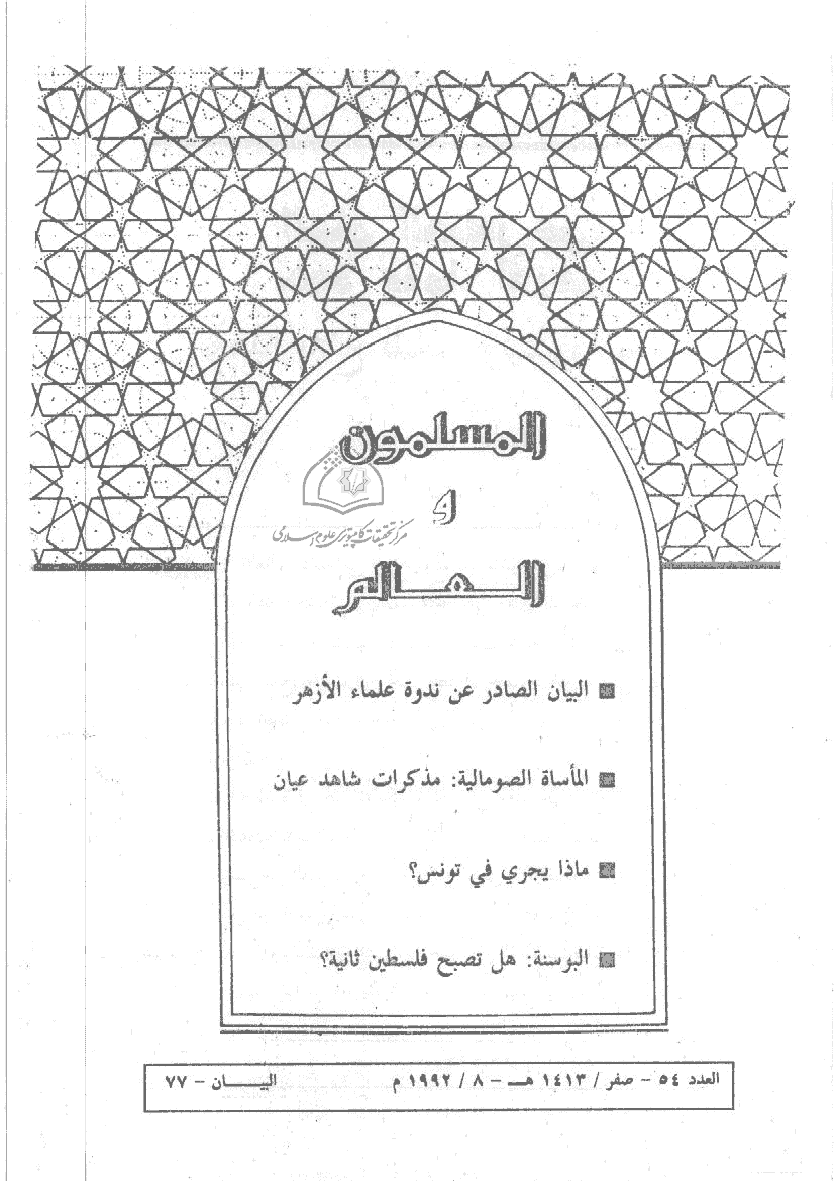 المسلمون
و
العالم
مركز تحقيقات كامپيوتري علوم اسلامي
البيان الصادر عن ندوة علماء الأزهر
المأساة الصومالية: مذكرات شاهد عيان
ماذا يجري في تونس؟
البوسنة: هل تصبح فلسطين ثانية؟
العدد ٥٤ - صفر / ١٤١٣ هـ - ٨ / ١٩٩٢ م البيـــان - ٧٧